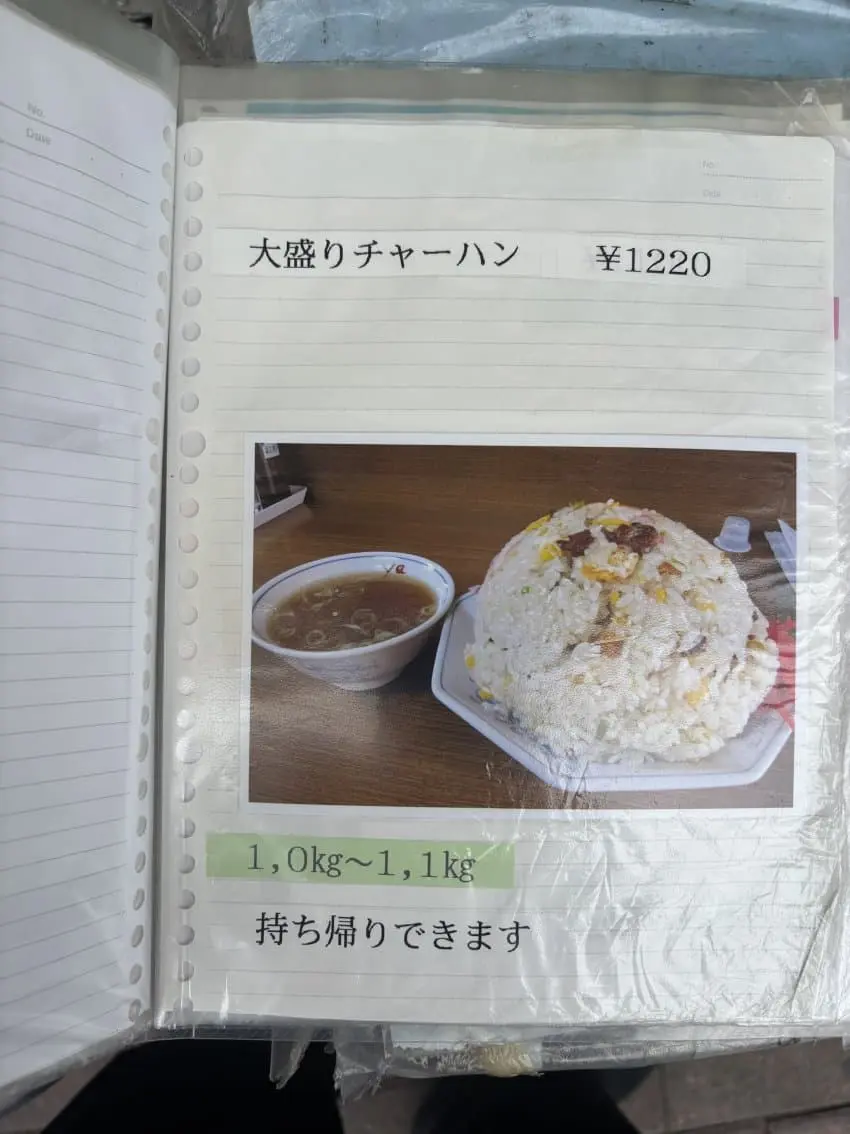 No.
Date
No.
Date
大盛りチャーハン ¥1220
1,0kg〜1,1kg
持ち帰りできます